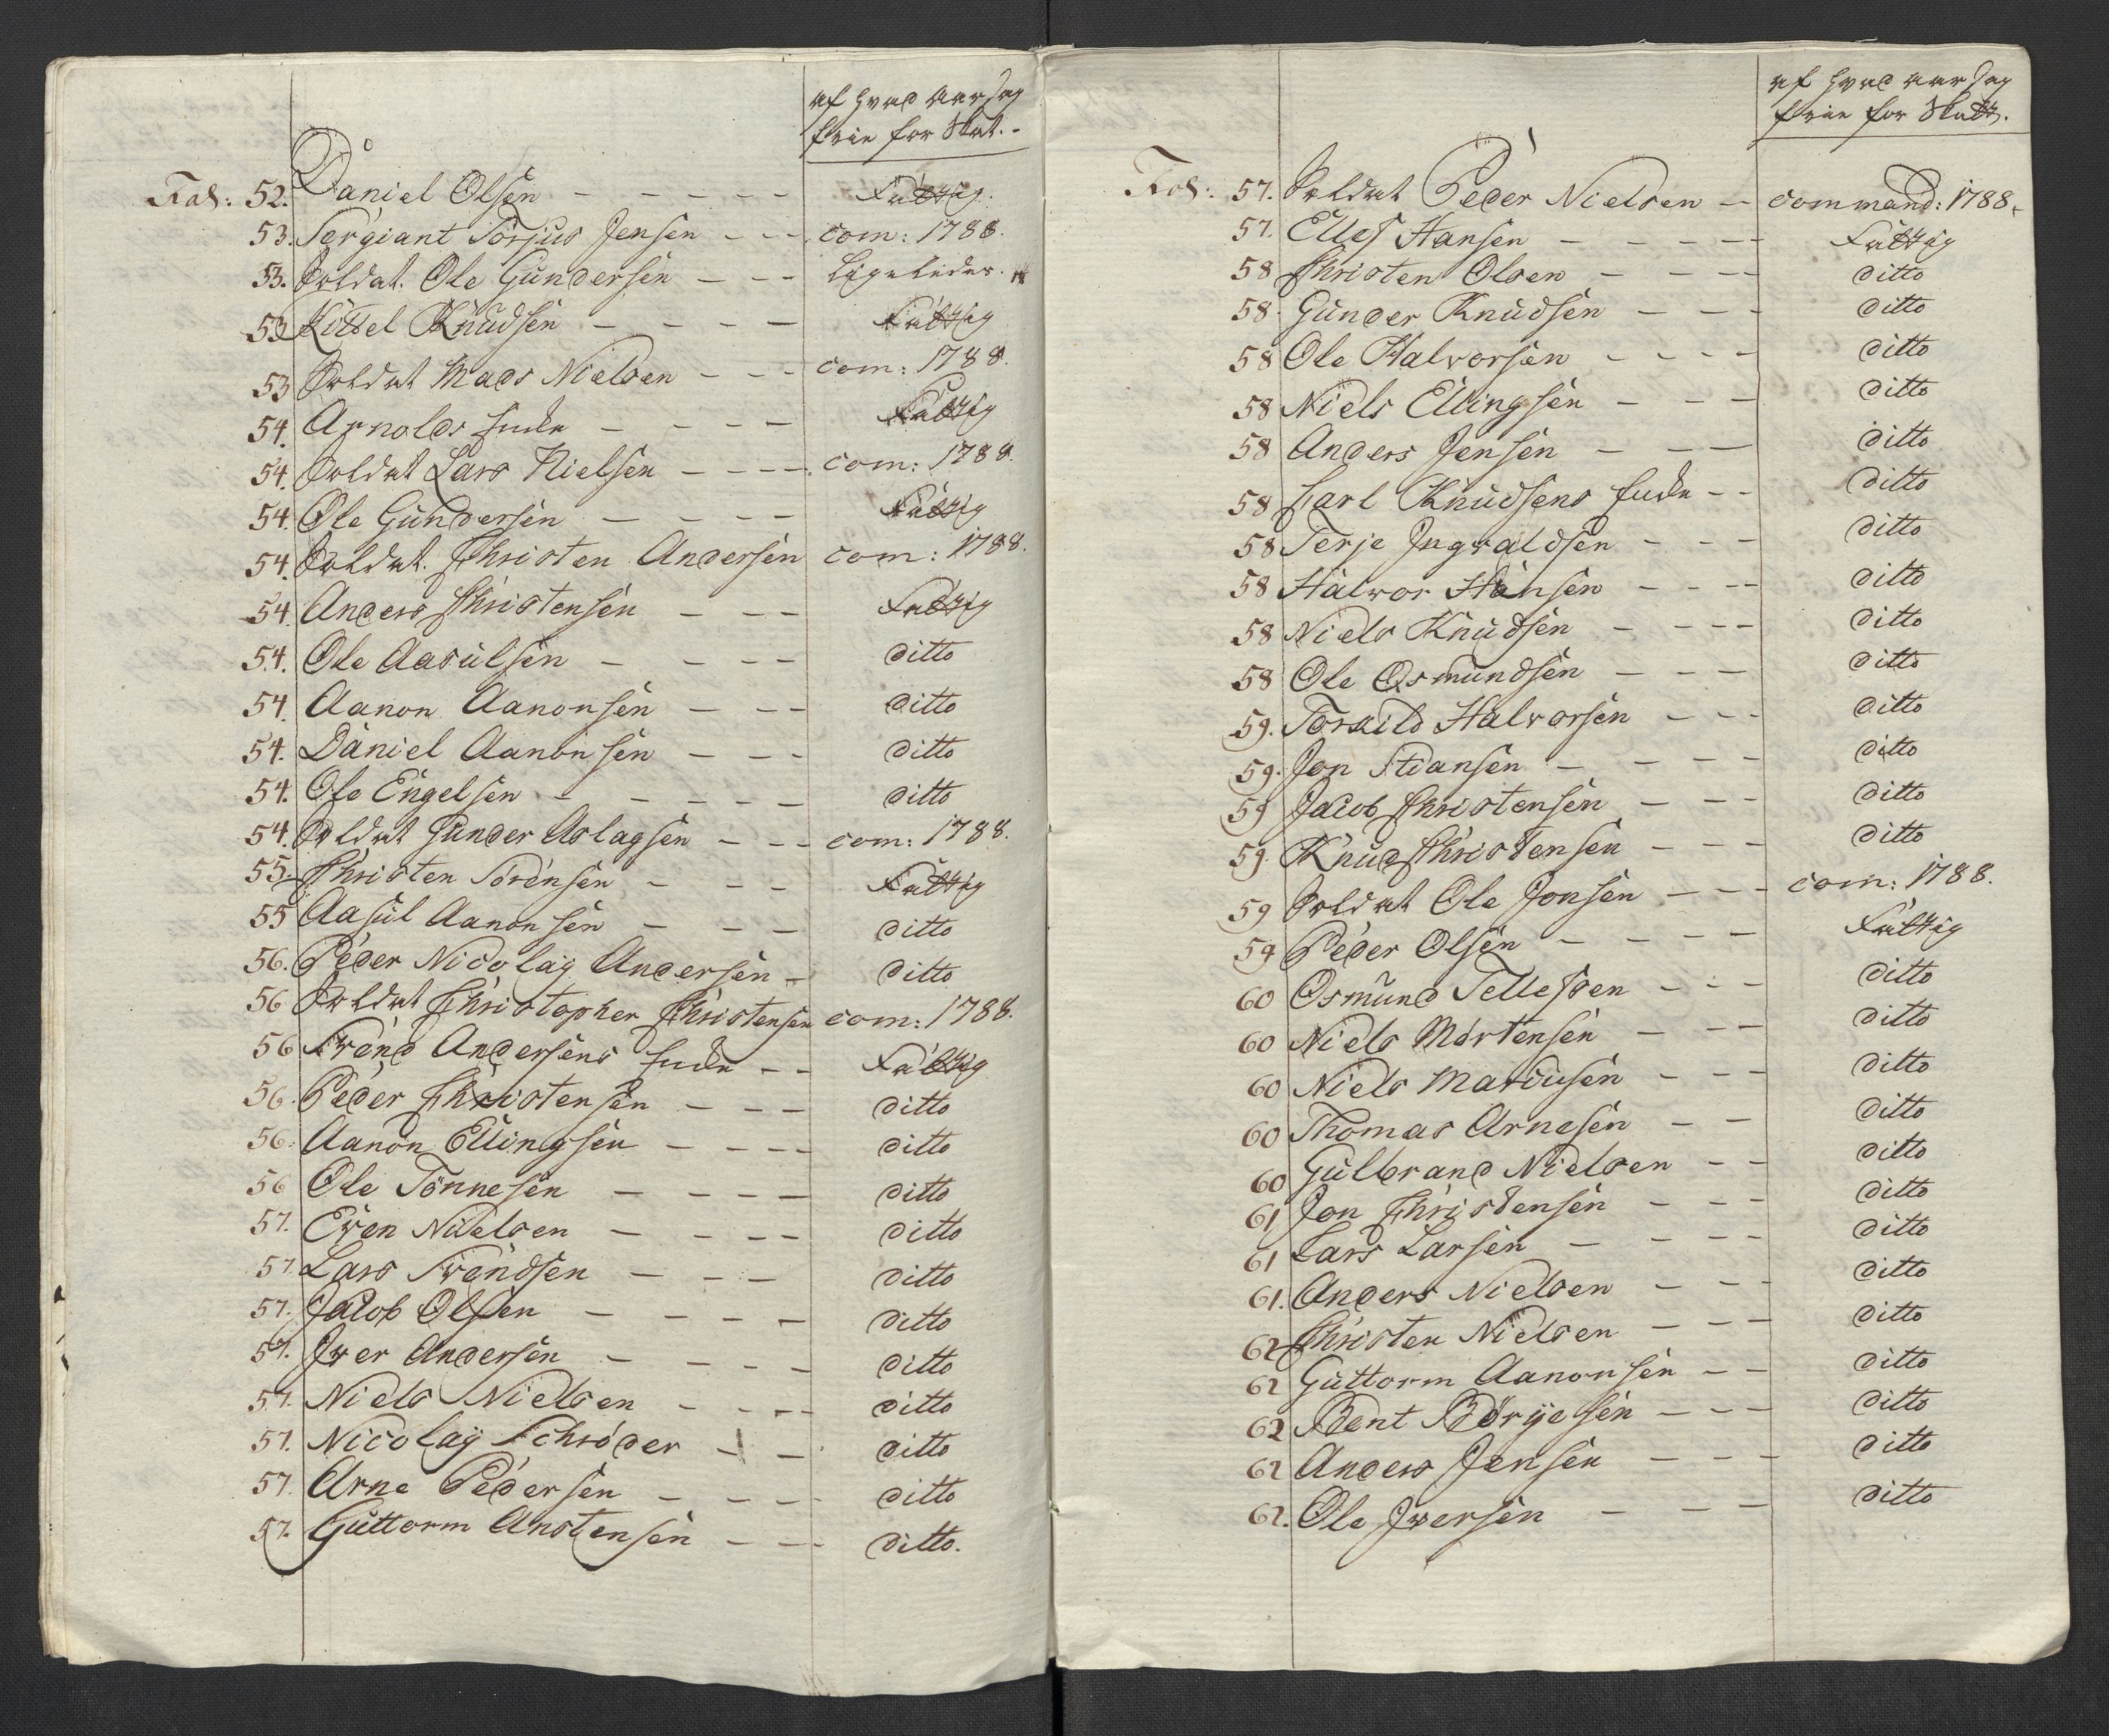 af hvad aarsag
frie for Skat.
Fol: 52. Daniel Olsen - - - - - Fattig.
53. Sergiant Torjus Jensen - - - com: 1788.
53. Soldat. Ole Gundersen - - - Ligeledes.
53 Kittel Knudsen - - - - Fattig
53 Soldat Mads Nielsen - - - com: 1788.
54. Arnolds Encke - - - - Fattig
54. Soldat Lars Nielsen - - - - com: 1788.
54. Ole Gundersen - - - - Fattig
54. Soldat. Christen Andersen com: 1788.
54. Anders Christensen - - - Fattig
54. Ole Aasulsen - - - - ditto
54. Aanon Aanonsen - - - ditto
54. Daniel Aanonsen - - - ditto
54. Ole Engelsen - - - - - ditto
54. Soldat Gunder Aslagsen - - - com: 1788.
55. Christen Sörensen - - - Fattig
55 Aasul Aanonsen - - - ditto
56. Peder Nicolay Andersen - ditto
56 Soldat Christopher Christensen com: 1788.
56 Svend Andersens Encke - - Fattig
56. Peder Christensen - - - ditto
56. Aanon Ellingsen - - - - ditto
56 Ole Tönnesen - - - - ditto
57. Even Nielsen - - - - ditto
57. Lars Svendsen - - - ditto
57. Jacob Olsen - - - - ditto
57. Iver Andersen - - - - ditto
57. Niels Nielsen - - - - ditto
57. Nicolay Schröder - - ditto
57. Arne Pedersen - - - - ditto
57. Guttorm Anstensen - - - ditto.
af hvad aarsag
frie for Skatt.
Fol: 57. Soldat Peder Nielsen - command: 1788.
57. Ellef Hansen - - - - - Fattig
58 Christen Olsen - - - - ditto
58. Gunder Knudsen - - - ditto
58 Ole Halvorsen - - - - ditto
58 Niels Ellingsen - - - ditto
58 Anders Jensen - - - ditto
58 Carl Knudsens Encke - - ditto
58 Terje Ingvaldsen - - - ditto
58 Halvor Hansen - - - - ditto
58 Niels Knudsen - - - - ditto
58 Ole Osmundsen - - - ditto
59. Torkild Halvorsen - - - ditto
59. Jon Stiansen - - - - ditto
59 Jacob Christensen - - - ditto
59. Knud Christensen - - - ditto
59 Soldat Ole Jonsen - - - com: 1788.
59 Peder Olsen - - - - Fattig
60 Osmund Tellefsen - - - ditto
60 Niels Mortensen - - - ditto
60 Niels Mathisen - - - ditto
60 Thomas Arnesen - - ditto
60 Gulbrand Nielsen - - ditto
61 Jon Christensen - - - ditto
61 Lars Larsen - - - - ditto
61. Anders Nielsen - - - ditto
62 Christen Nielsen - - - ditto
62 Guttorm Aanonsen - - ditto
62 Bent Börgesen - - - ditto
62 Anders Jensen - - - ditto
62. Ole Iversen - - - ditto